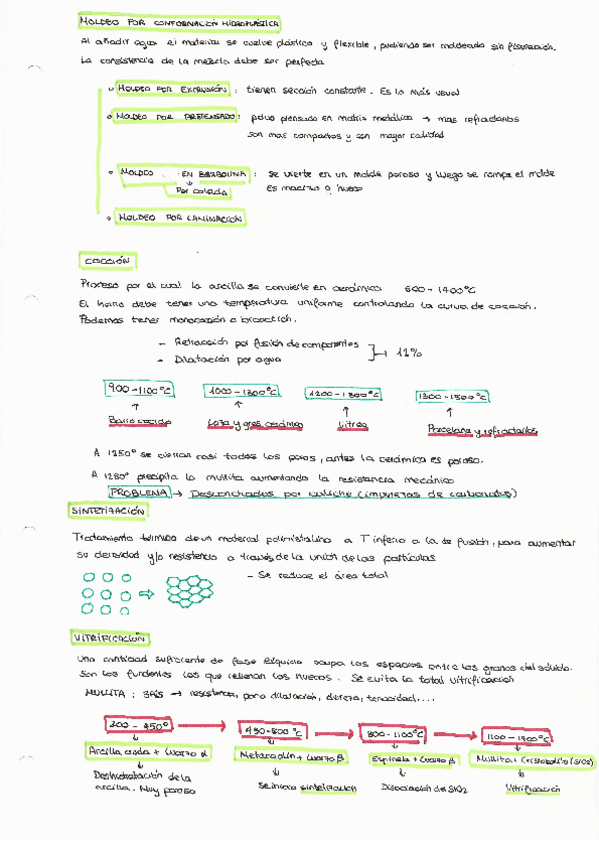 MOLDEO POR CONFORMACIÓN HIDROPLÁSTICA
Al añadir agua el material se vuelve plástico y flexible, pudiendo ser moldeado sin fisuración.
La consistencia de la mezcla debe ser perfecta
MOLDEO POR EXTRUSIÓN : tienen sección constante. Es lo más usual
MOLDEO POR PRENSADO : polvo prensado en matriz metálica → mas refractarios
son mas compactos y con mayor calidad
MOLDEO EN BARBOTINA : se vierte en un molde poroso y luego se rompe el molde
Por colada Es macizo o hueco
MOLDEO POR LAMINACIÓN
COCCIÓN
Proceso por el cual la arcilla se convierte en cerámica 600-1400ºC
El horno debe tener una temperatura uniforme controlando la curva de cocción.
Podemos tener monococción o bicocción.
- Retracción por fusión de componentes
- Dilatación por agua → 12%
900-1100ºC 1000-1300ºC 1200-1300ºC 1300-1500ºC
Barro cocido Loza y gres cerámico Lítreo Porcelana y refractarios
A 1250º se cierran casi todos los poros, antes la cerámica es poroso.
A 1280º precipita la mullita aumentando la resistencia mecánica
PROBLEMA → Desconchados por caliche (impurezas de carbonatos)
SINTETIZACIÓN
Tratamiento térmico de un material policristalino a T inferio a la de fusión, para aumentar
su densidad y/o resistencia a través de la unión de las partículas
- Se reduce el área total
VITRIFICACIÓN
Una cantidad suficiente de fase líquida ocupa los espacios entre los granos del sólido.
Son los fundentes los que rellenan los huecos. Se evita la total vitrificación
MULLITA : → resistencia, poca dilatación, dureza, tenacidad....
200 - 450º 450-800ºC 800-1100ºC 1100-1300ºC
Arcilla cruda + Cuarzo α Metacaolín + Cuarzo β Espinela + Cuarzo β Mullita + Cristobalita (SiO2)
Deshidratación de la Se inicia sintetización Disociación del SiO2 Vitrificación
arcilla. Muy poroso